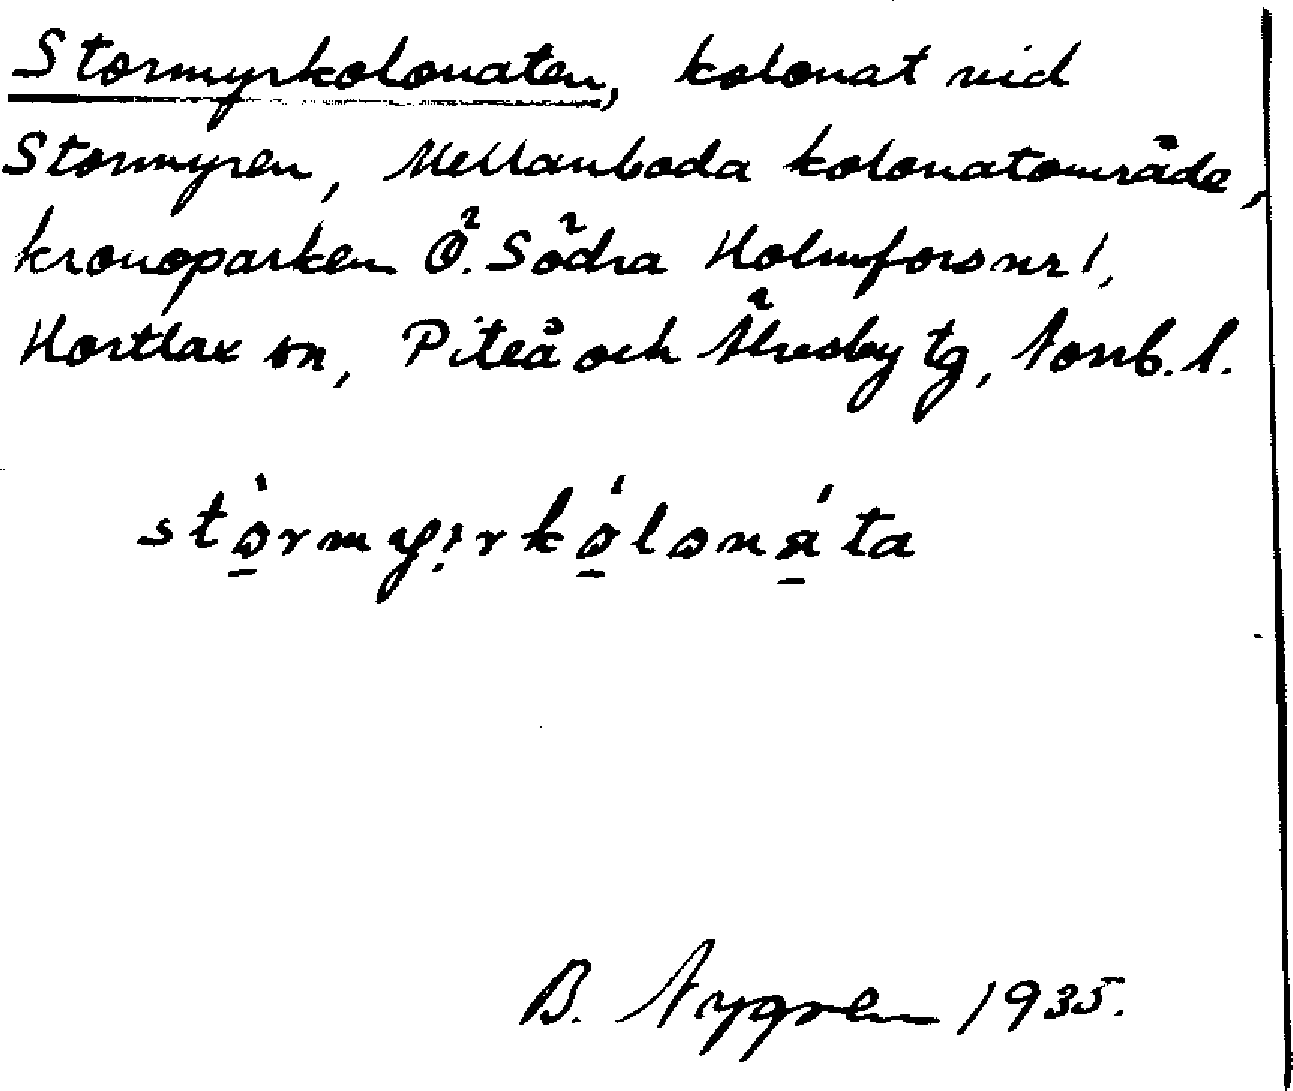 Stormyrkolonaten, kolonat vid
Stormyren, Mellanboda kolonatområde,
kronoparken Ö. Södra Holmfors nr 1,
Hortlax sn, Piteå och Älvsby tg, Norrb. l.
stò̱rmyi̥rkó̱loná̱ta
B. Nygren 1935.